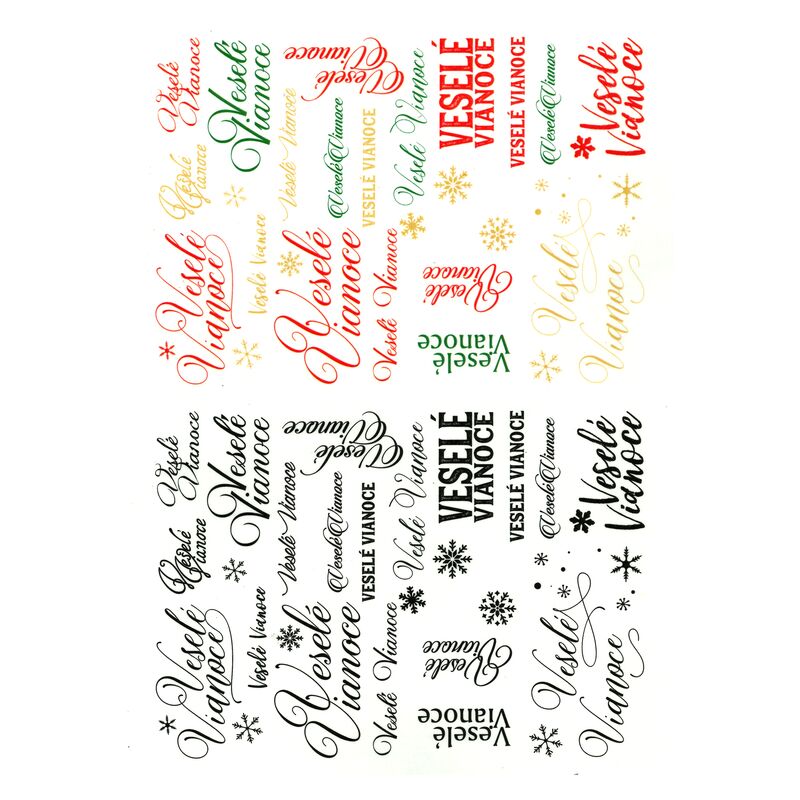 Veselé
Vianoce
Veselé
Vianoce
Veselé
Vianoce
VESELÉ
VIANOCE
VESELÉ VIANOCE
Veselé Vianoce
Veselé
Vianoce
Veselé
Vianoce
Veselé Vianoce
Veselé Vianoce
VESELÉ VIANOCE
Veselé Vianoce
Veselé
Vianoce
Veselé Vianoce
Veselé
Vianoce
Veselé Vianoce
Veselé
Vianoce
Veselé
Vianoce
Veselé
Vianoce
Veselé
Vianoce
Veselé
Vianoce
Veselé
Vianoce
VESELÉ
VIANOCE
VESELÉ VIANOCE
Veselé Vianoce
Veselé
Vianoce
Veselé
Vianoce
Veselé Vianoce
Veselé Vianoce
VESELÉ VIANOCE
Veselé Vianoce
Veselé
Vianoce
Veselé Vianoce
Veselé
Vianoce
Veselé Vianoce
Veselé
Vianoce
Veselé
Vianoce
Veselé
Vianoce